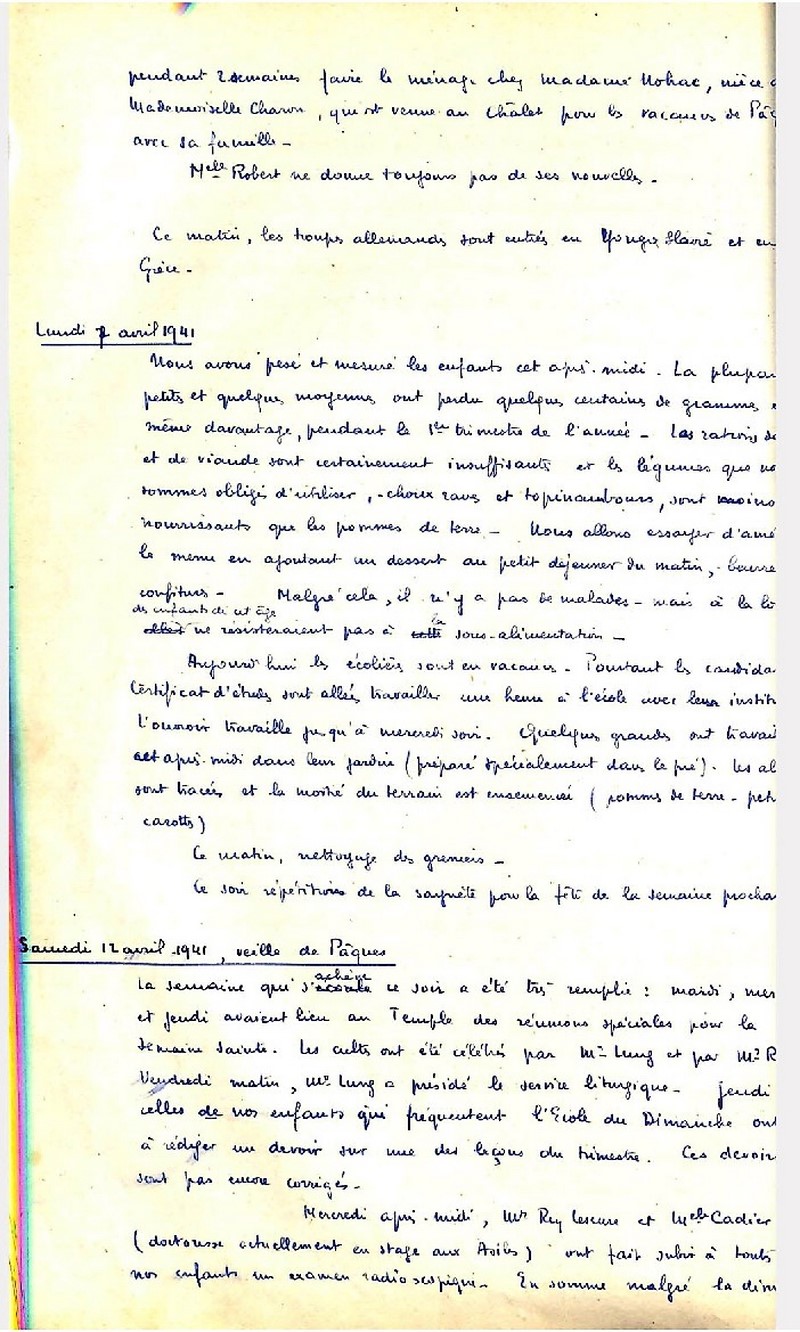 pendant 2 semaines faire le ménage chez Madame Nohac, nièce
Mademoiselle Charon, qui est venue au Châlet pour les vacances de Pâq
avec sa famille -
Melle Robert ne donne toujours pas de ses nouvelles -
Ce matin, les troupes allemandes sont entrées en Yougo Slavie et en
Grèce -
Lundi 7 avril 1941
Nous avons pesé et mesuré les enfants cet après-midi - La plupar
petits et quelques moyennes ont perdu quelques centaines de grammes
même davantage, pendant le 1er trimestre de l'année - Les rations de
et de viande sont certainement insuffisantes et les légumes que no
sommes obligés d'utiliser, - choux raves et topinambours, sont moins
nourrissants que les pommes de terre - Nous allons essayer d'amé
le menu en ajoutant un dessert au petit déjeuner du matin, - beurre
confitures - Malgré cela, il n'y a pas de malades - mais à la lo
des enfants de cet âge
elles ne résisteraient pas à cette la sous-alimentation -
Aujourd'hui les écoliers sont en vacances - Pourtant les candida
Certificat d'études sont allées travailler une heure à l'école avec leur instit
l'ouvroir travaille jusqu'à mercredi soir. Quelques grandes ont travai
cet après-midi dans leur jardin (préparé spécialement dans le pré). Les al
sont tracées et la moitié du terrain est ensemencé (pommes de terre - pet
carottes)
Ce matin, nettoyage des greniers -
Ce soir répétition de la saynète pour la fête de la semaine procha
Samedi 12 avril 1941, veille de Pâques
achève
La semaine qui s'écoule ce soir a été très remplie : mardi, mer
et jeudi avaient lieu au Temple des réunions spéciales pour la
semaine sainte. Les cultes ont été célébrés par Mr Lung et par Mr R
Vendredi matin, Mr Lung a présidé le service liturgique - Jeudi
celles de nos enfants qui fréquentent l'Ecole du Dimanche ont
à rédiger un devoir sur une des leçons du trimestre. Ces devoir
sont pas encore corrigés -
Mercredi après-midi, Mr Rey Lescure et Melle Cadier
(doctoresse actuellement en stage aux Asiles) ont fait subir à toutes
nos enfants un examen radioscopique - En somme malgré la dim